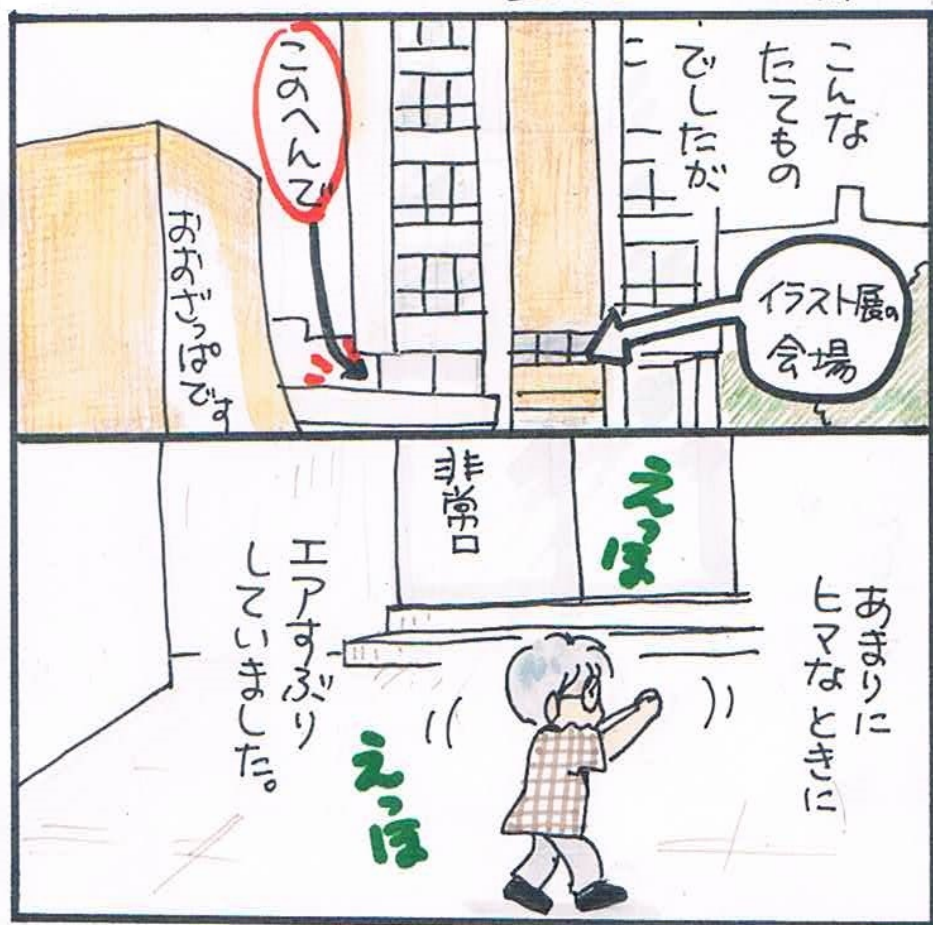 こんな
たてもの
でしたが
イラスト展の
会場
このへんで
おおざっぱです
あまりに
ヒマなときに
えっほ
非常口
エアすぶり
していました。
えっほ